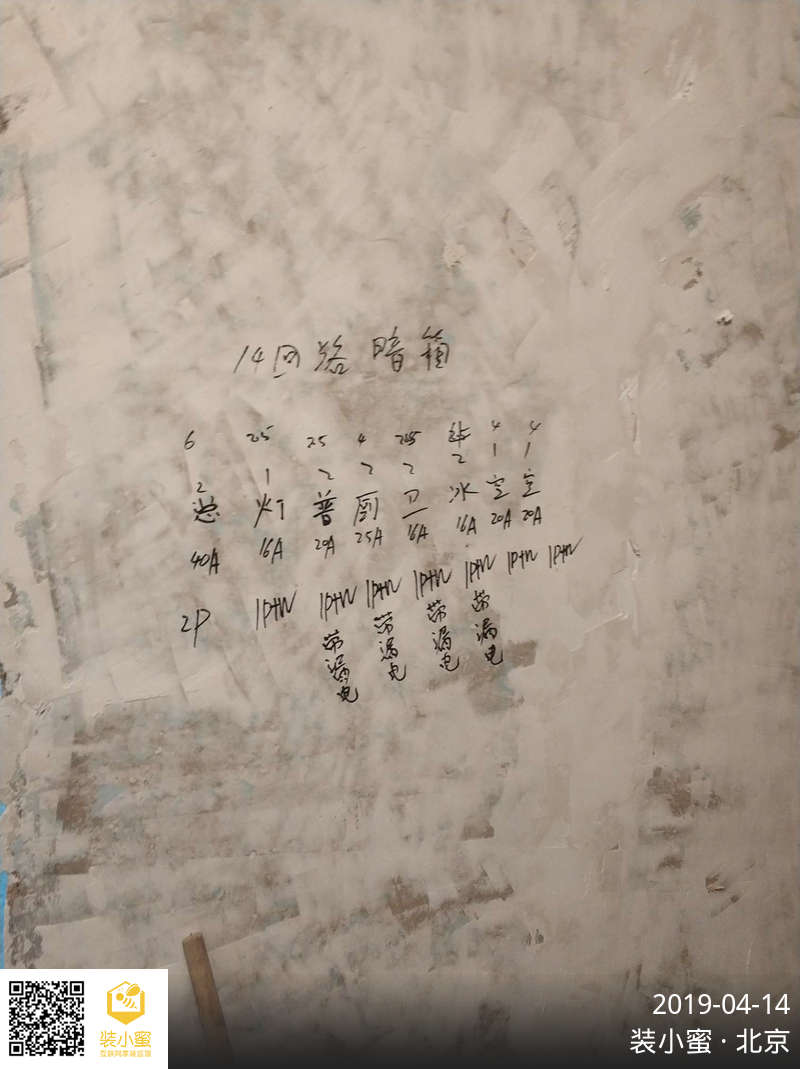 14回路暗箱
6 2.5 2.5 4 2.5 4 4
2 1 2 2 2 2 1 1
总 灯 普 厨 卫 冰 空 空
40A 16A 20A 25A 16A 16A 20A 20A
2P 1P+N 1P+N 1P+N 1P+N 1P+N 1P+N 1P+N
带漏电 带漏电 带漏电 带漏电
装小蜜
互联网家装监理
2019-04-14
装小蜜·北京